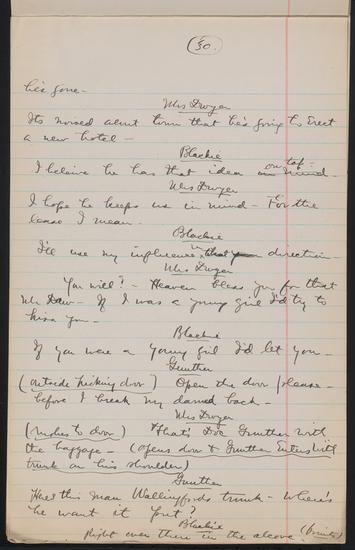 (30.)
he's gone —
Mrs Dwyer
Its noised about town that he's going to Erect
a new hotel —
Blackie
I beleive he has that idea in mind — on tap —
Mrs Dwyer
I hope he keeps us in mind — For the
lease I mean —
Blackie
I'll use my influence in that direction —
Mrs Dwyer
You will? — Heaven bless you for that
Mr Daw — If I was a young girl I'd try to
kiss you —
Blackie
If you were a young girl I'd let you —
Gunther
(outside kicking door) Open the door please —
before I break my darned back —
Mrs Dwyer
(rushes to door) That's Doc Gunther with
the baggage — (opens door & Gunther Enters with
trunk on his shoulder)
Gunther
Heres this man Wallingfords trunk — where's
he want it put?
Blackie
Right over there in the alcove (points)